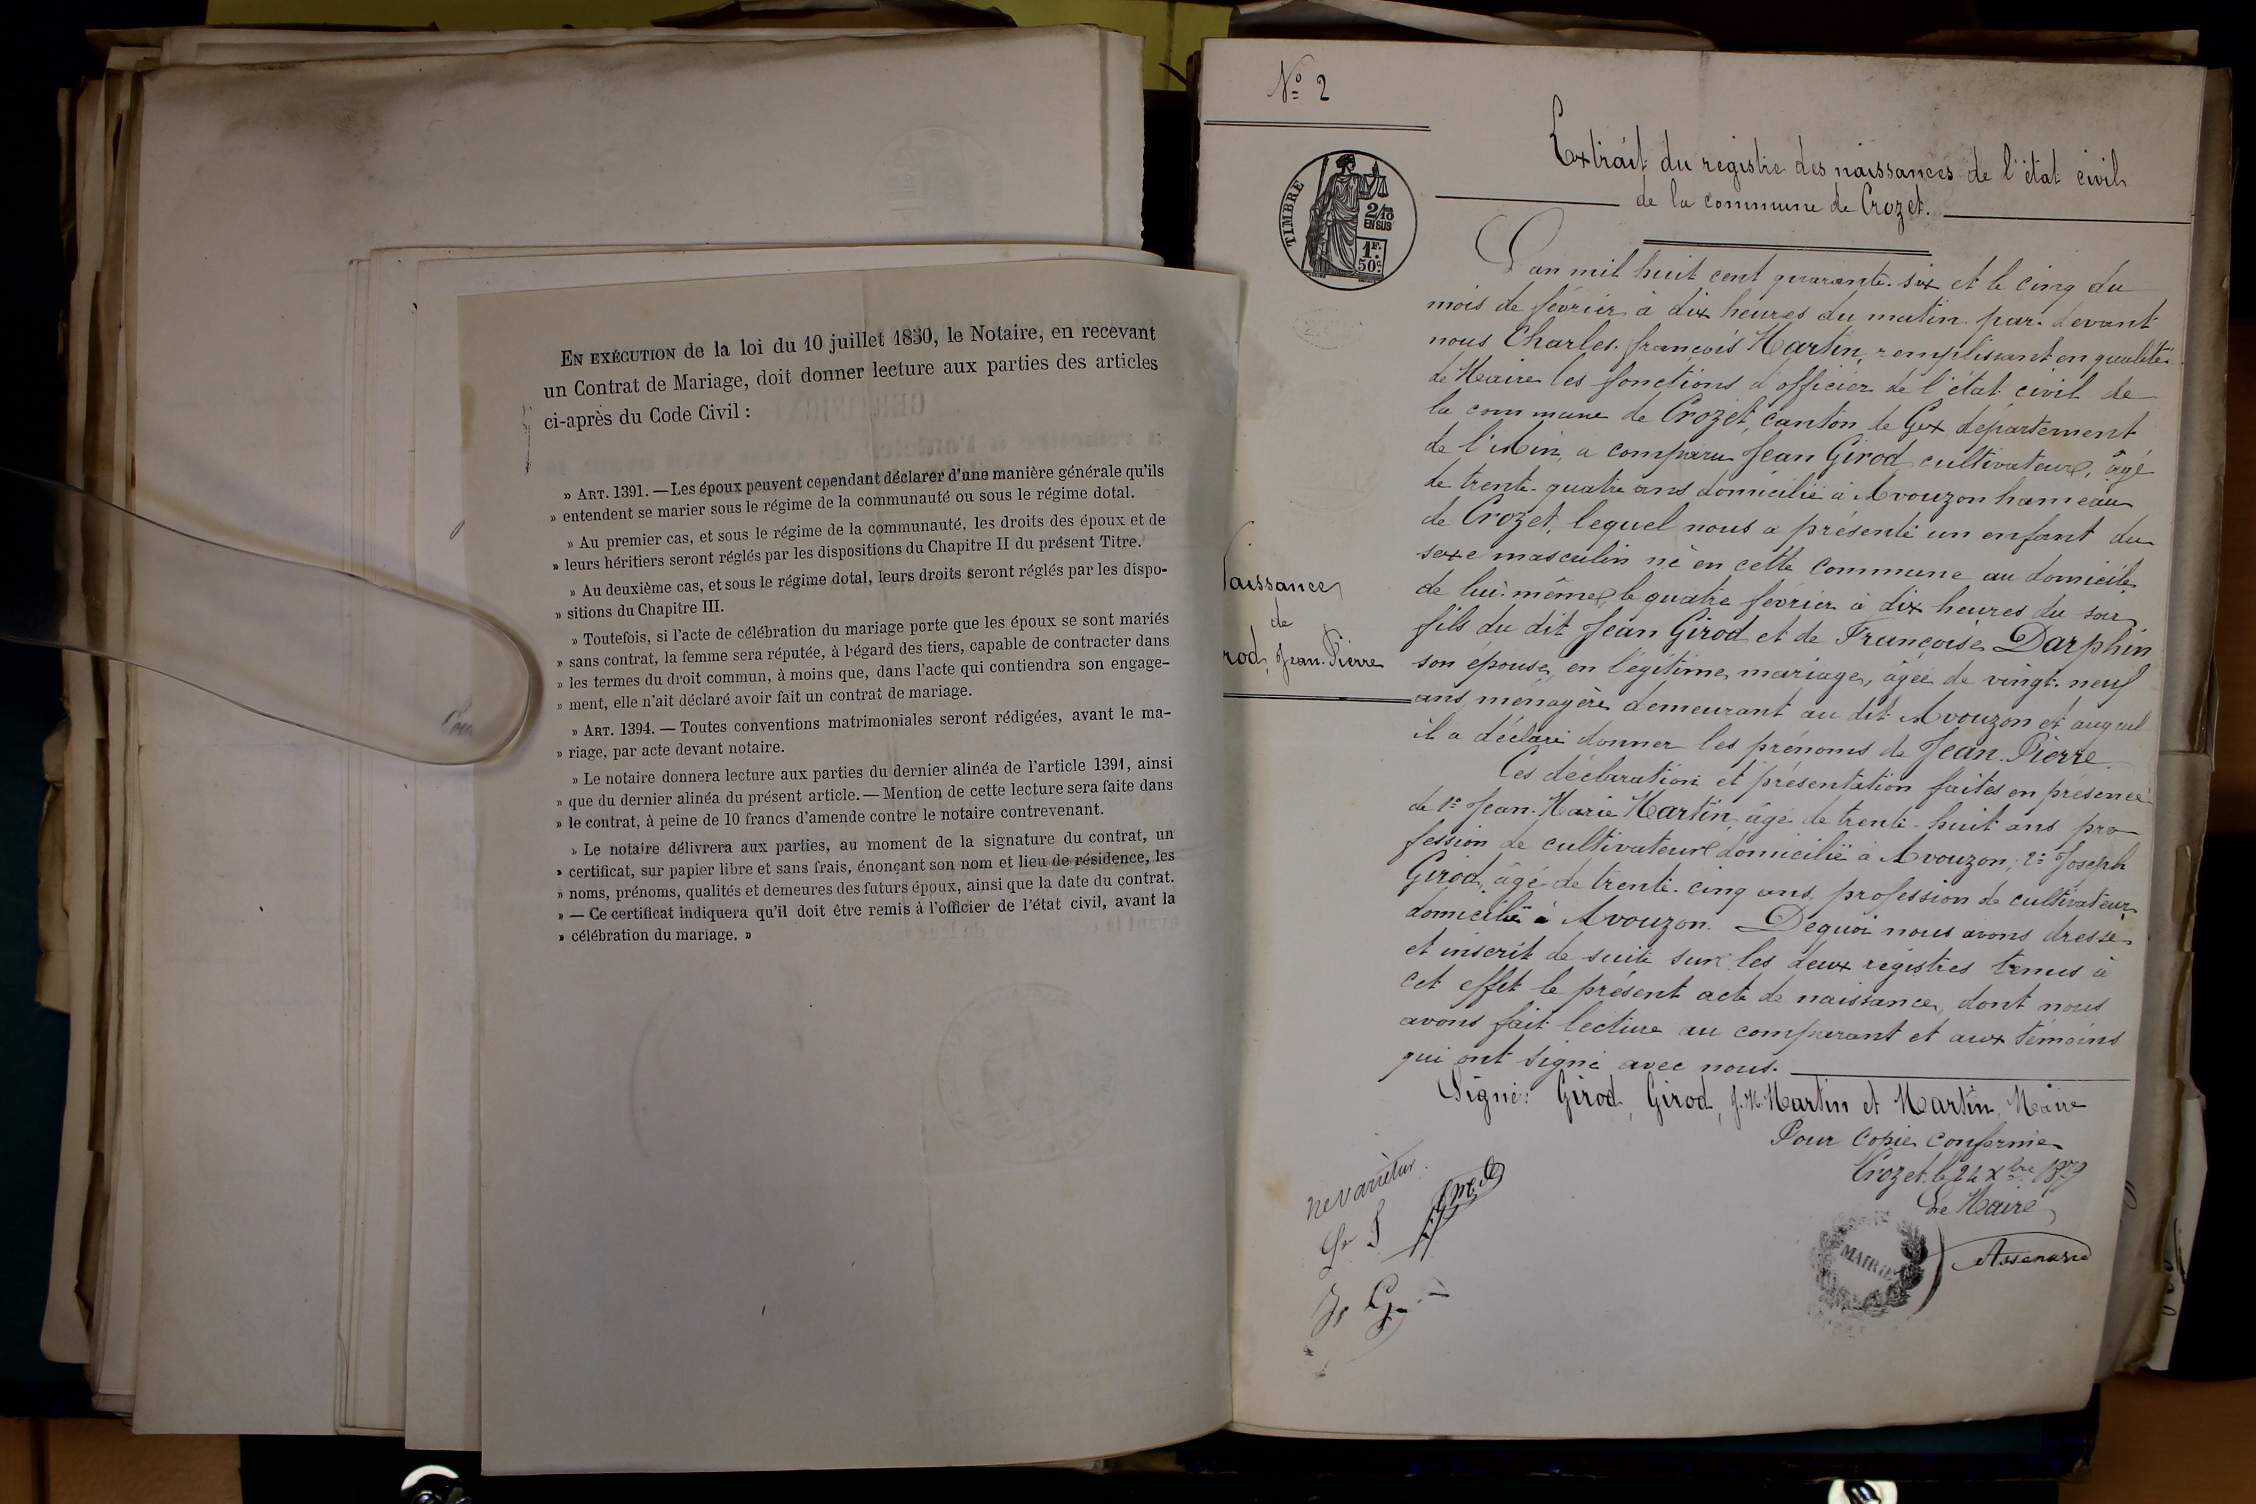 EN EXÉCUTION de la loi du 10 juillet 1850, le Notaire, en recevant
un Contrat de Mariage, doit donner lecture aux parties des articles
ci-après du Code Civil :
» ART. 1391. — Les époux peuvent cependant déclarer d'une manière générale qu'ils
» entendent se marier sous le régime de la communauté ou sous le régime dotal.
» Au premier cas, et sous le régime de la communauté, les droits des époux et de
» leurs héritiers seront réglés par les dispositions du Chapitre II du présent Titre.
» Au deuxième cas, et sous le régime dotal, leurs droits seront réglés par les dispo-
» sitions du Chapitre III.
» Toutefois, si l'acte de célébration du mariage porte que les époux se sont mariés
» sans contrat, la femme sera réputée, à l'égard des tiers, capable de contracter dans
» les termes du droit commun, à moins que, dans l'acte qui contiendra son engage-
» ment, elle n'ait déclaré avoir fait un contrat de mariage.
» ART. 1394. — Toutes conventions matrimoniales seront rédigées, avant le ma-
» riage, par acte devant notaire.
» Le notaire donnera lecture aux parties du dernier alinéa de l'article 1391, ainsi
» que du dernier alinéa du présent article. — Mention de cette lecture sera faite dans
» le contrat, à peine de 10 francs d'amende contre le notaire contrevenant.
» Le notaire délivrera aux parties, au moment de la signature du contrat, un
» certificat, sur papier libre et sans frais, énonçant son nom et lieu de résidence, les
» noms, prénoms, qualités et demeures des futurs époux, ainsi que la date du contrat.
» — Ce certificat indiquera qu'il doit être remis à l'officier de l'état civil, avant la
» célébration du mariage. »
N° 2
TIMBRE
2/10
EN SUS
1F.
50c.
Extrait du registre des naissances de l'état civil
de la commune de Crozet.
L'an mil huit cent quarante-six et le cinq du
mois de février à dix heures du matin par-devant
nous Charles-françois Martin, remplissant en qualité
de Maire les fonctions d'officier de l'état civil de
la commune de Crozet, canton de Gex, département
de l'Ain, a comparu Jean Girod, cultivateur, âgé
de trente-quatre ans domicilié à Avouzon hameau
de Crozet, lequel nous a présenté un enfant du
sexe masculin né en cette commune au domicile
de lui-même, le quatre février à dix heures du soir
fils du dit Jean Girod et de Françoise Darphin
son épouse, en légitime mariage, âgée de vingt-neuf
ans, ménagère demeurant au dit Avouzon et auquel
il a déclaré donner les prénoms de Jean-Pierre.
Ces déclaration et présentation faites en présence
de 1° Jean-Marie Martin, âgé de trente-huit ans pro-
fession de cultivateur domicilié à Avouzon; 2° Joseph
Girod, âgé de trente-cinq ans, profession de cultivateur
domicilié à Avouzon. De quoi nous avons dressé
et inscrit de suite sur les deux registres tenus à
cet effet le présent acte de naissance, dont nous
avons fait lecture au comparant et aux témoins
qui ont signé avec nous.
Signé: Girod, Girod, J. M. Martin et Martin, Maire
Pour copie conforme
Crozet, le 24 Xbre 1879
Le Maire
MAIRIE
aissance
de
rod, Jean-Pierre
ne varietur.